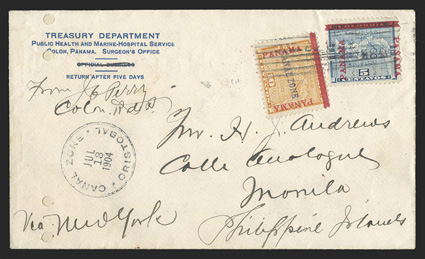 TREASURY DEPARTMENT
PUBLIC HEALTH AND MARINE-HOSPITAL SERVICE
COLON, PANAMA. SURGEON'S OFFICE
OFFICIAL BUSINESS
RETURN AFTER FIVE DAYS
From J C Perry
Colon,
CRISTOBAL
JUL
13
1904
CANAL ZONE
PANAMA
CANAL ZONE
PANAMA
PANAMA
5
PANAMA
Mr. H. J. Andrews
Calle Analogue
Manila
Philippine Islands
Via New York